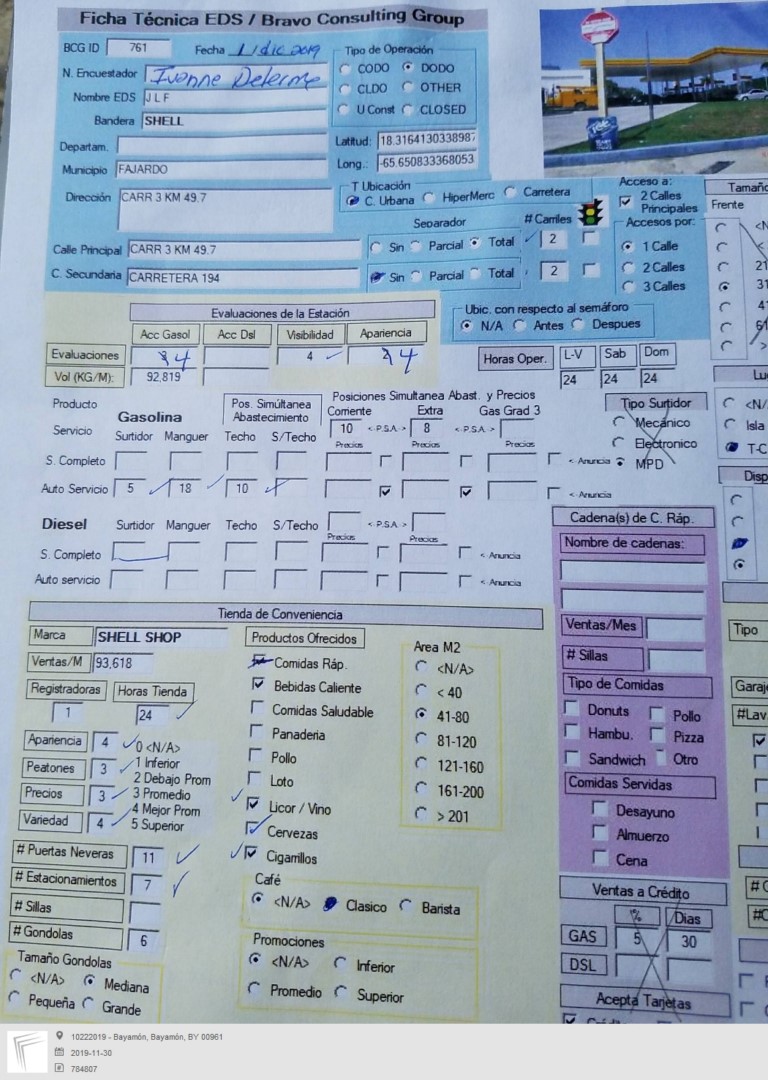 Ficha Técnica EDS / Bravo Consulting Group
BCG ID 761 Fecha 1/dic 2019
N. Encuestador Ivonne
Nombre EDS JLF
Bandera SHELL
Departam.
Municipio FAJARDO
Dirección CARR 3 KM 49.7
Calle Principal CARR 3 KM 49.7
C. Secundaria CARRETERA 194
Tipo de Operación
CODO DODO
CLDO OTHER
U Const CLOSED
Latitud: 18.3164130338987
Long.: -65.650833368053
T Ubicación
C. Urbana HiperMerc Carretera
Separador # Carriles
Sin Parcial Total 2
Sin Parcial Total 2
Acceso a:
2 Calles
Principales
Accesos por:
1 Calle
2 Calles
3 Calles
Tamaño
Frente
Evaluaciones de la Estación
Acc Gasol Acc Dsl Visibilidad Apariencia
Evaluaciones 4 4 4
Vol (KG/M): 92,819
Ubic. con respecto al semáforo
N/A Antes Despues
Horas Oper. L-V Sab Dom
24 24 24
Producto Gasolina
Pos. Simúltanea
Abastecimiento
Posiciones Simultanea Abast. y Precios
Corriente Extra Gas Grad 3
10 <-P.S.A-> 8 <-P.S.A->
Servicio Surtidor Manguer Techo S/Techo Precios Precios Precios
S. Completo <- Anuncia
Auto Servicio 5 18 10 <- Anuncia
Tipo Surtidor
Mecánico
Electronico
MPD
<N/
Isla
T-C
Disp
Diesel Surtidor Manguer Techo S/Techo <-P.S.A->
Precios Precios
S. Completo <- Anuncia
Auto servicio <- Anuncia
Cadena(s) de C. Ráp.
Nombre de cadenas:
Ventas/Mes
# Sillas
Tipo de Comidas
Donuts Pollo
Hambu. Pizza
Sandwich Otro
Comidas Servidas
Desayuno
Almuerzo
Cena
Tipo
Garaje
#Lav.
Tienda de Conveniencia
Marca SHELL SHOP
Ventas/M 93,618
Registradoras Horas Tienda
1 24
Apariencia 4 0 <N/A>
1 Inferior
Peatones 3 2 Debajo Prom
Precios 3 3 Promedio
4 Mejor Prom
Variedad 4 5 Superior
# Puertas Neveras 11
# Estacionamientos 7
# Sillas
# Gondolas 6
Tamaño Gondolas
<N/A> Mediana
Pequeña Grande
Productos Ofrecidos
Comidas Ráp.
Bebidas Caliente
Comidas Saludable
Panaderia
Pollo
Loto
Licor / Vino
Cervezas
Cigarrillos
Area M2
<N/A>
< 40
41-80
81-120
121-160
161-200
> 201
Café
<N/A> Clasico Barista
Promociones
<N/A> Inferior
Promedio Superior
Ventas a Crédito
% Dias
GAS 5 30
DSL
Acepta Tarjetas
10222019 - Bayamón, Bayamón, BY 00961
2019-11-30
784807